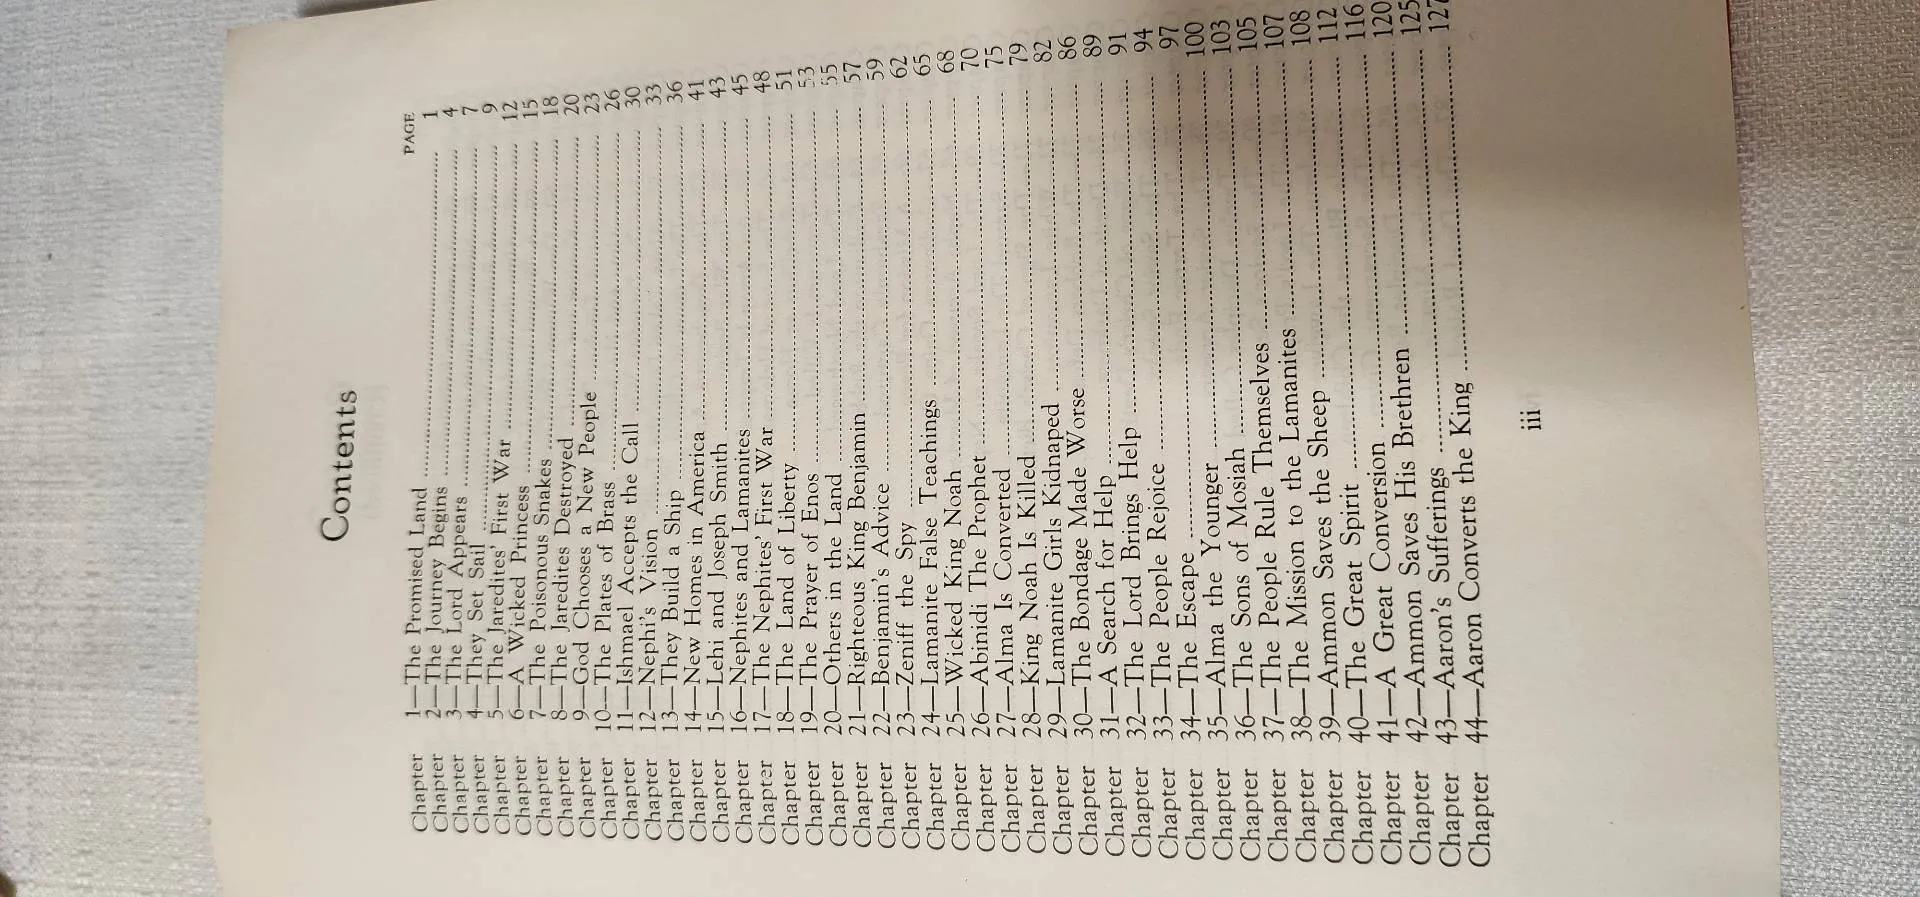 Contents
PAGE
Chapter 1—The Promised Land 1
Chapter 2—The Journey Begins 4
Chapter 3—The Lord Appears 7
Chapter 4—They Set Sail 9
Chapter 5—The Jaredites' First War 12
Chapter 6—A Wicked Princess 15
Chapter 7—The Poisonous Snakes 18
Chapter 8—The Jaredites Destroyed 20
Chapter 9—God Chooses a New People 23
Chapter 10—The Plates of Brass 26
Chapter 11—Ishmael Accepts the Call 30
Chapter 12—Nephi's Vision 33
Chapter 13—They Build a Ship 36
Chapter 14—New Homes in America 41
Chapter 15—Lehi and Joseph Smith 43
Chapter 16—Nephites and Lamanites 45
Chapter 17—The Nephites' First War 48
Chapter 18—The Land of Liberty 51
Chapter 19—The Prayer of Enos 53
Chapter 20—Others in the Land 55
Chapter 21—Righteous King Benjamin 57
Chapter 22—Benjamin's Advice 59
Chapter 23—Zeniff the Spy 62
Chapter 24—Lamanite False Teachings 65
Chapter 25—Wicked King Noah 68
Chapter 26—Abinidi The Prophet 70
Chapter 27—Alma Is Converted 75
Chapter 28—King Noah Is Killed 79
Chapter 29—Lamanite Girls Kidnaped 82
Chapter 30—The Bondage Made Worse 86
Chapter 31—A Search for Help 89
Chapter 32—The Lord Brings Help 91
Chapter 33—The People Rejoice 94
Chapter 34—The Escape 97
Chapter 35—Alma the Younger 100
Chapter 36—The Sons of Mosiah 103
Chapter 37—The People Rule Themselves 105
Chapter 38—The Mission to the Lamanites 107
Chapter 39—Ammon Saves the Sheep 108
Chapter 40—The Great Spirit 112
Chapter 41—A Great Conversion 116
Chapter 42—Ammon Saves His Brethren 120
Chapter 43—Aaron's Sufferings 125
Chapter 44—Aaron Converts the King 127
iii